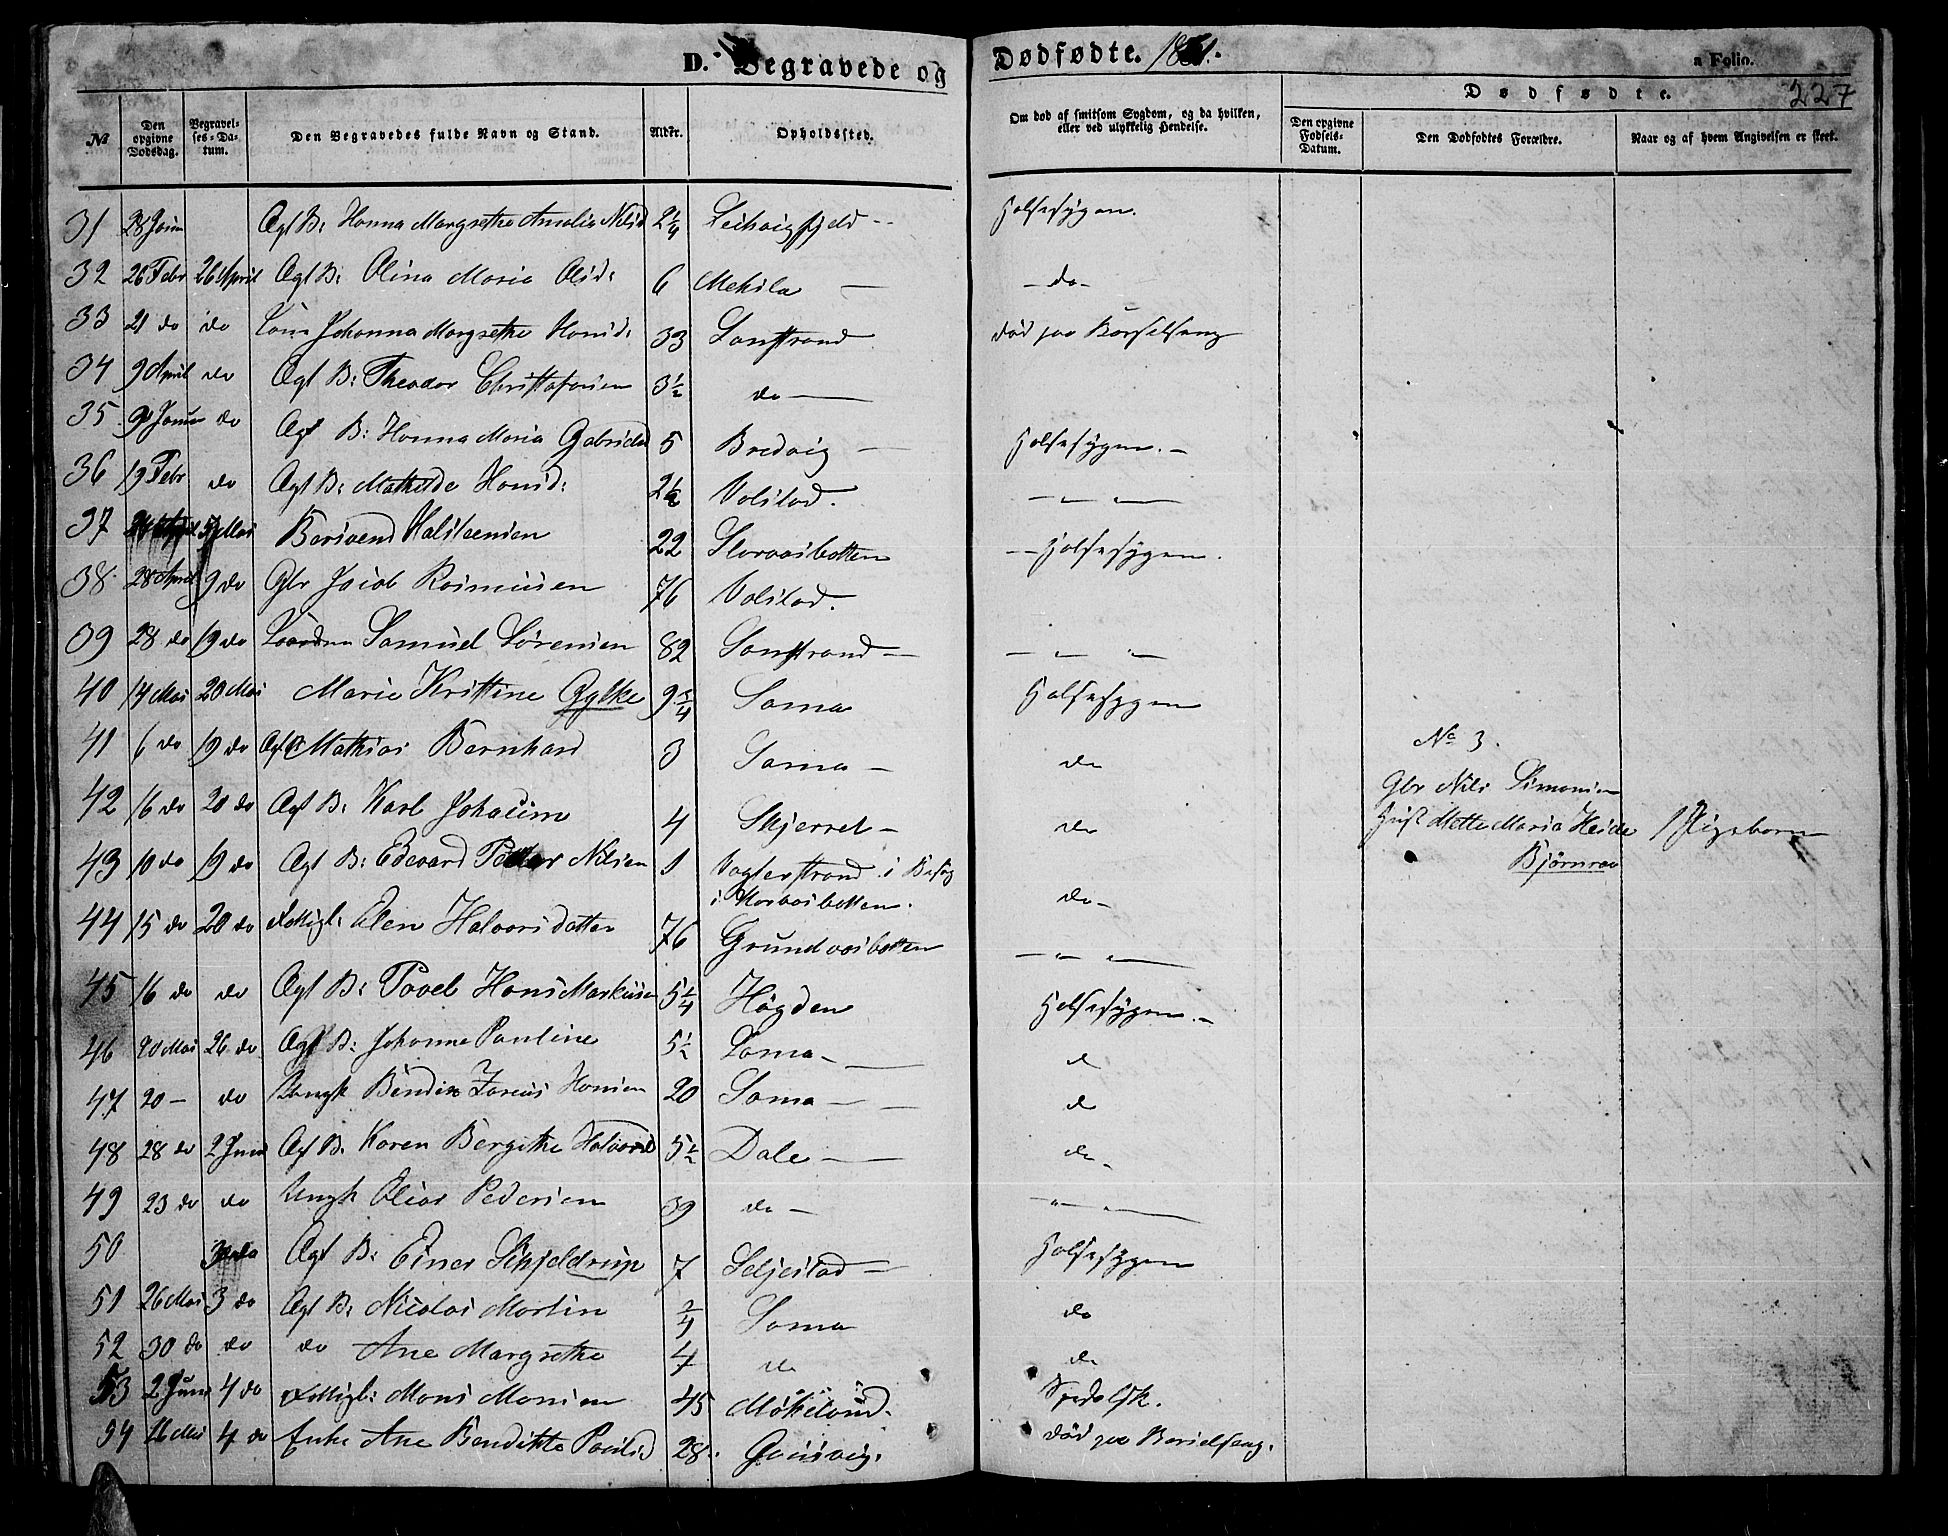 D. Begravede og Dødfødte. 1861.
a Folio.
227
№
Den opgivne Dødsdag.
Begravelses-Datum.
Den Begravedes fulde Navn og Stand.
Alder.
Opholdssted.
Om død af smitsom Sygdom, og da hvilken, eller ved ulykkelig Hendelse.
Dødfødte.
Den opgivne Fødsels-Datum.
Den Dødfødtes Forældre.
Naar og af hvem Angivelsen er skeet.
31 28 Jan Ægt B: Hanna Margrethe Amalia Nilsd 2¼ Halsesygen.
32 26 Febr 26 April Ægt B: Olina Maria Olsd: 6 Mekila — do -
33 21 do do Johanna Margrethe Hansd: 33 Sandstrand død paa Barselseng
34 9 April do Ægt B: Theodor Christofersen 3½ do —
35 do Ægt B: Hanna Maria Gabrielsd 5 Bredvig — Halsesygen. —
36 19 Febr do Ægt B: Mathilde Hansd: 2½ Volstad. — " —
37 5 Mai Berivend Halsteensen 22 Storvasbotten — Halsesygen.
38 28 April 9 do Gbr Jacob Rasmussen 76 Volstad.
39 28 do 19 do Samuel Sørensen 82 Sandstrand — — " — " —
40 14 Mai 20 Mai Marie Kristine Gylke 9¾ Sama Halsesygen
41 6 do 19 do Ægt B Mathias Bernhard 3 Sama — do
42 16 do 20 do Ægt B: Karl Johacim 4 Skjerret — do
43 10 do 19 do Ægt B: Edevard Petter Nilsen 1 Vagterstrand i Besøg
i botten. do -
44 15 do 20 do Fattigl: Elen Halvorsdatter 76 Grundvasbotten — " — " —
45 16 do do Ægt B: Povel Hans Markusen 5¼ Høgden Halsesygen. —
46 20 Mai 26 do Ægt B: Johanna Pauline 5½ Sama — d
47 20 — do Ungk Bendix Hansen 20 Sama — d
48 28 do 2 Juni Ægt B. Karen Bergithe Halvorsd 5½ Dale — do -
49 23 do do Ungk Elias Pedersen 39 do — — " —
50 3 do Ægt B: Einer Schjeldrup 7 Seljestad — Halsesygen
51 26 Mai 3 do Ægt B: Nicolai Martin Sama do
52 30 do do do Ane Margrethe 4 do do
53 2 Juni 4 do Fattigl: Mons Monsen 45 Møkeland. Spedalsk.
54 26 Mai 4 do Enke Ane Bendikte Paulsd 28. Gausvig. død paa Barselseng.
№ 3.
Gbr Nils Simonsen
Hust Mette Maria Heide
Bjørnraa
1 Pigebarn